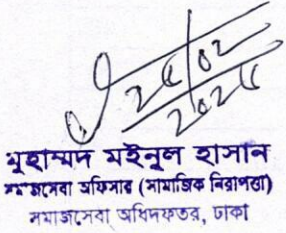 25/02
2025
মুহাম্মদ মইনুল হাসান
সমাজসেবা অফিসার (সামাজিক নিরাপত্তা)
সমাজসেবা অধিদফতর, ঢাকা